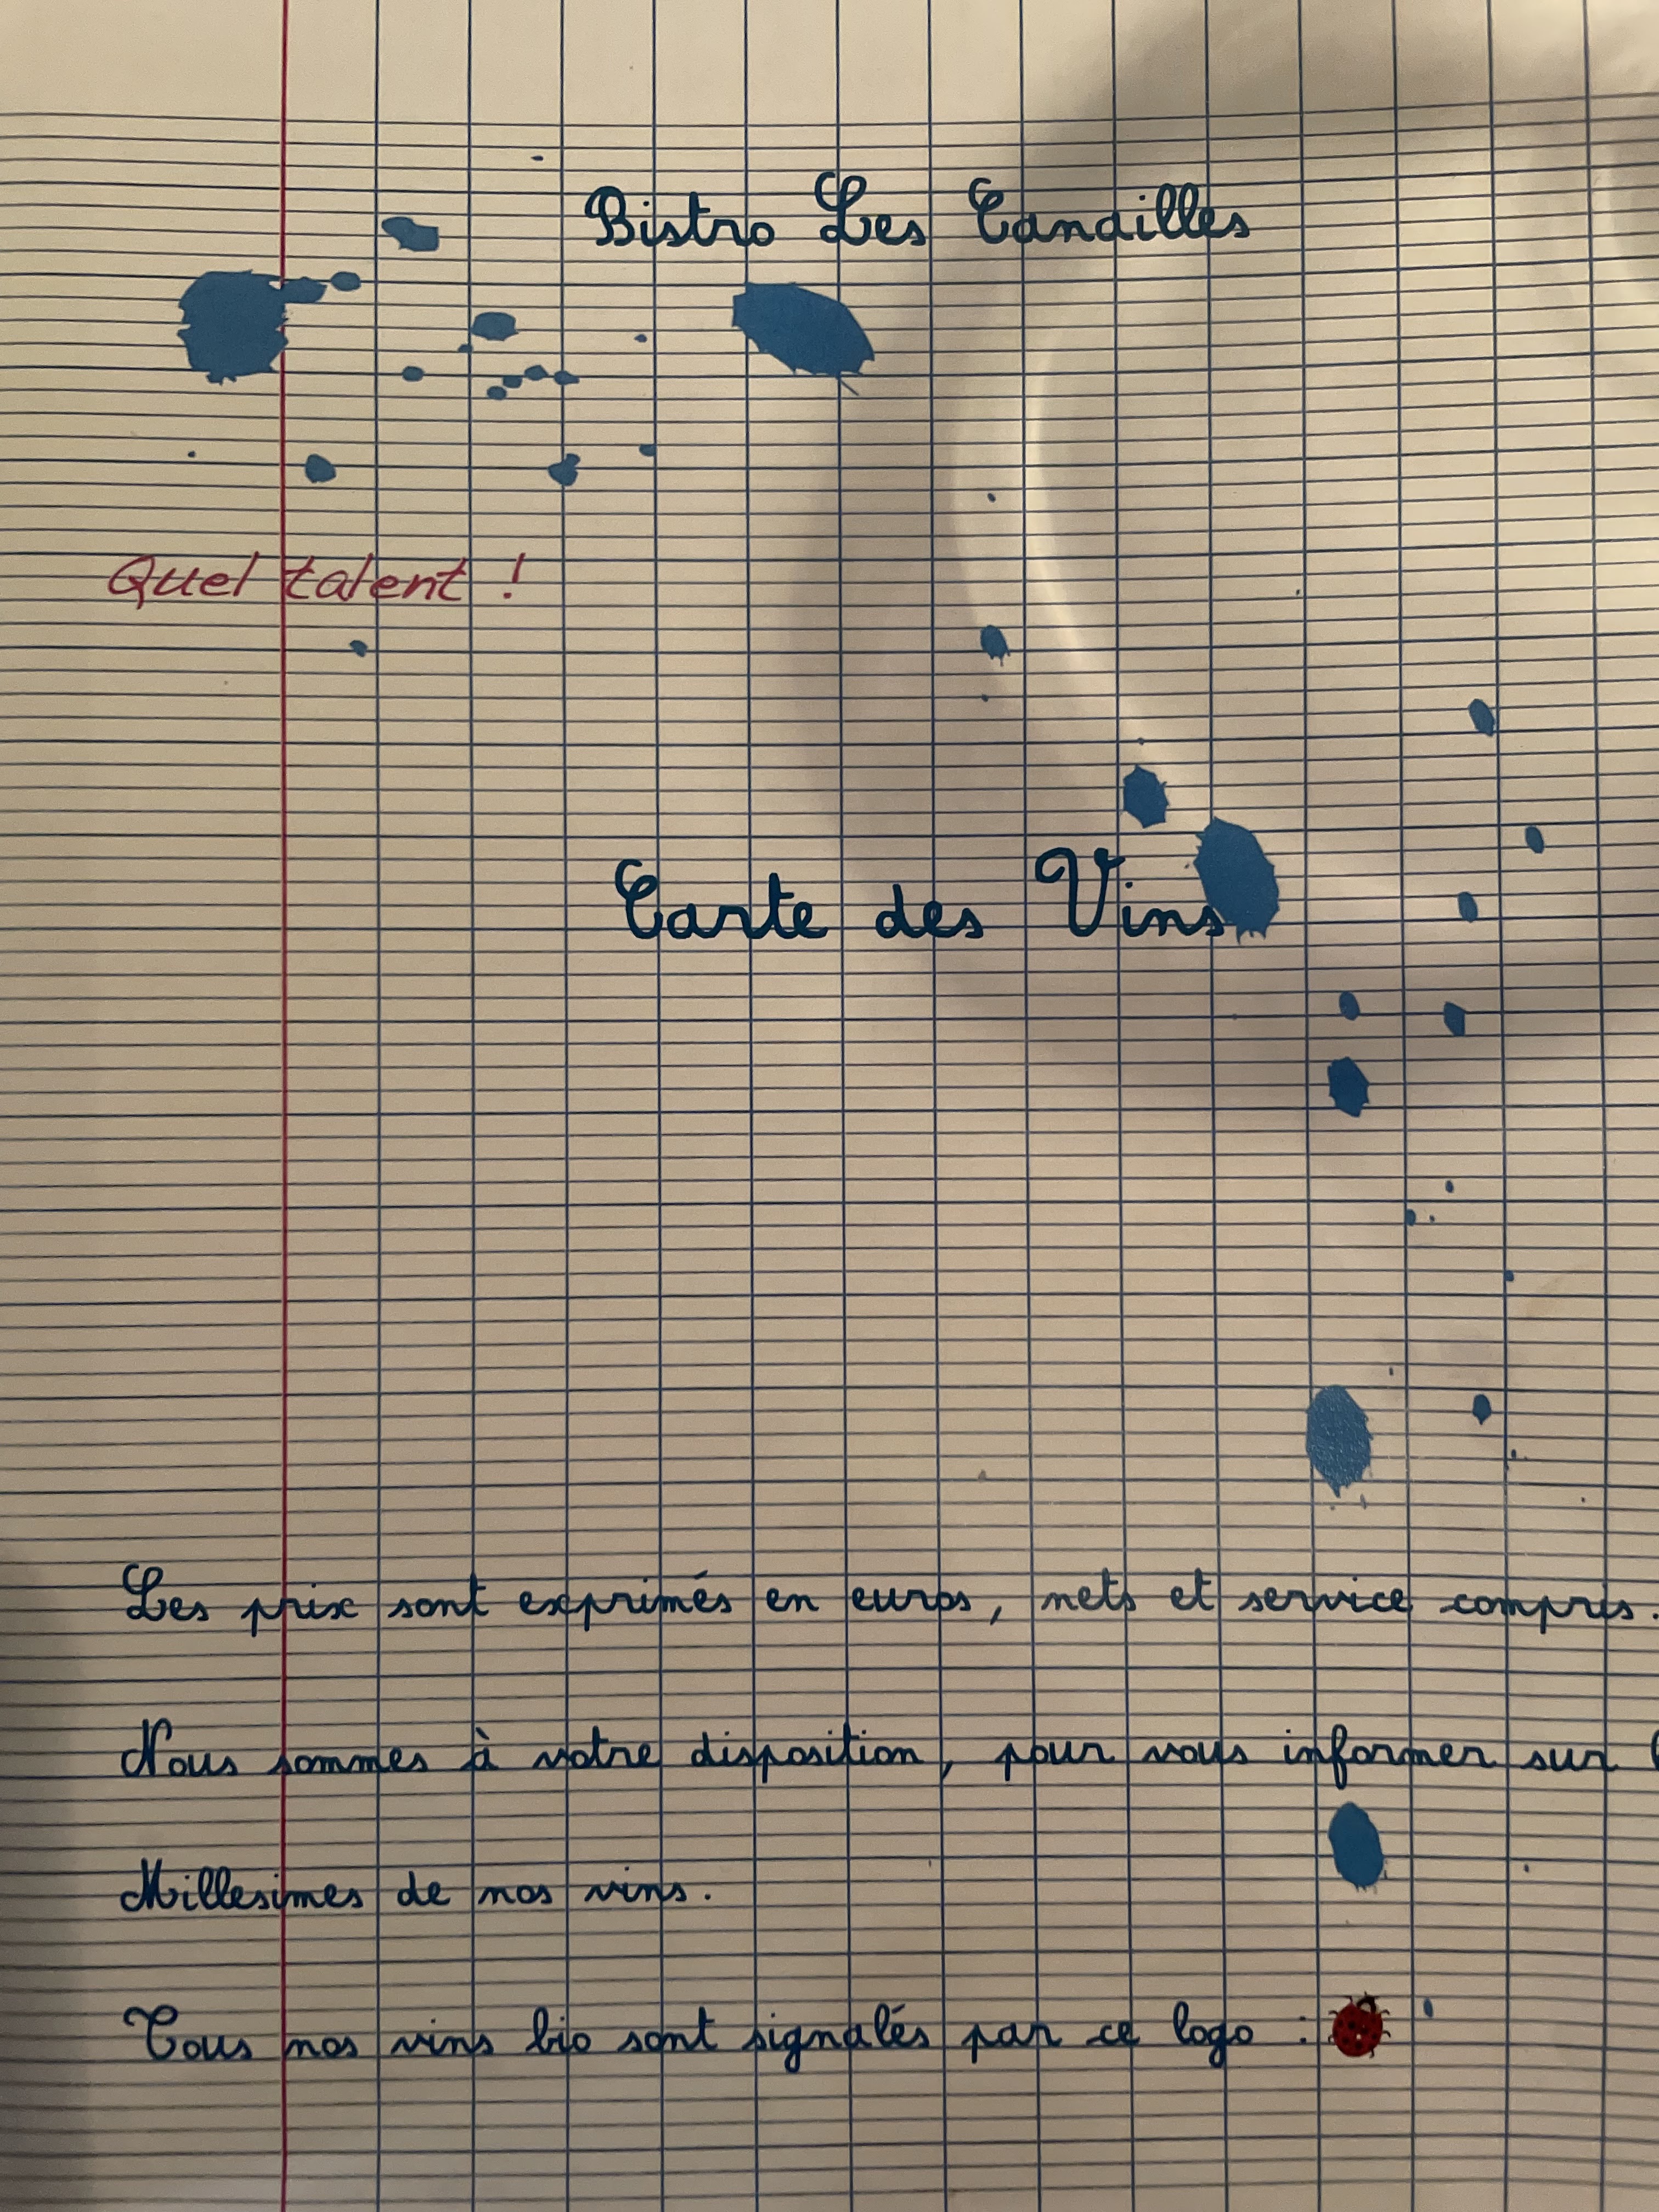 Bistro Les Canailles
Quel talent !
Carte des Vins
Les prix sont exprimés en euros, nets et service compris.
Nous sommes à votre disposition, pour vous informer sur
Millesimes de nos vins.
Tous nos vins bio sont signalés par ce logo :